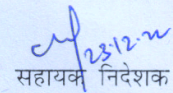 23.12.22
सहायक निदेशक